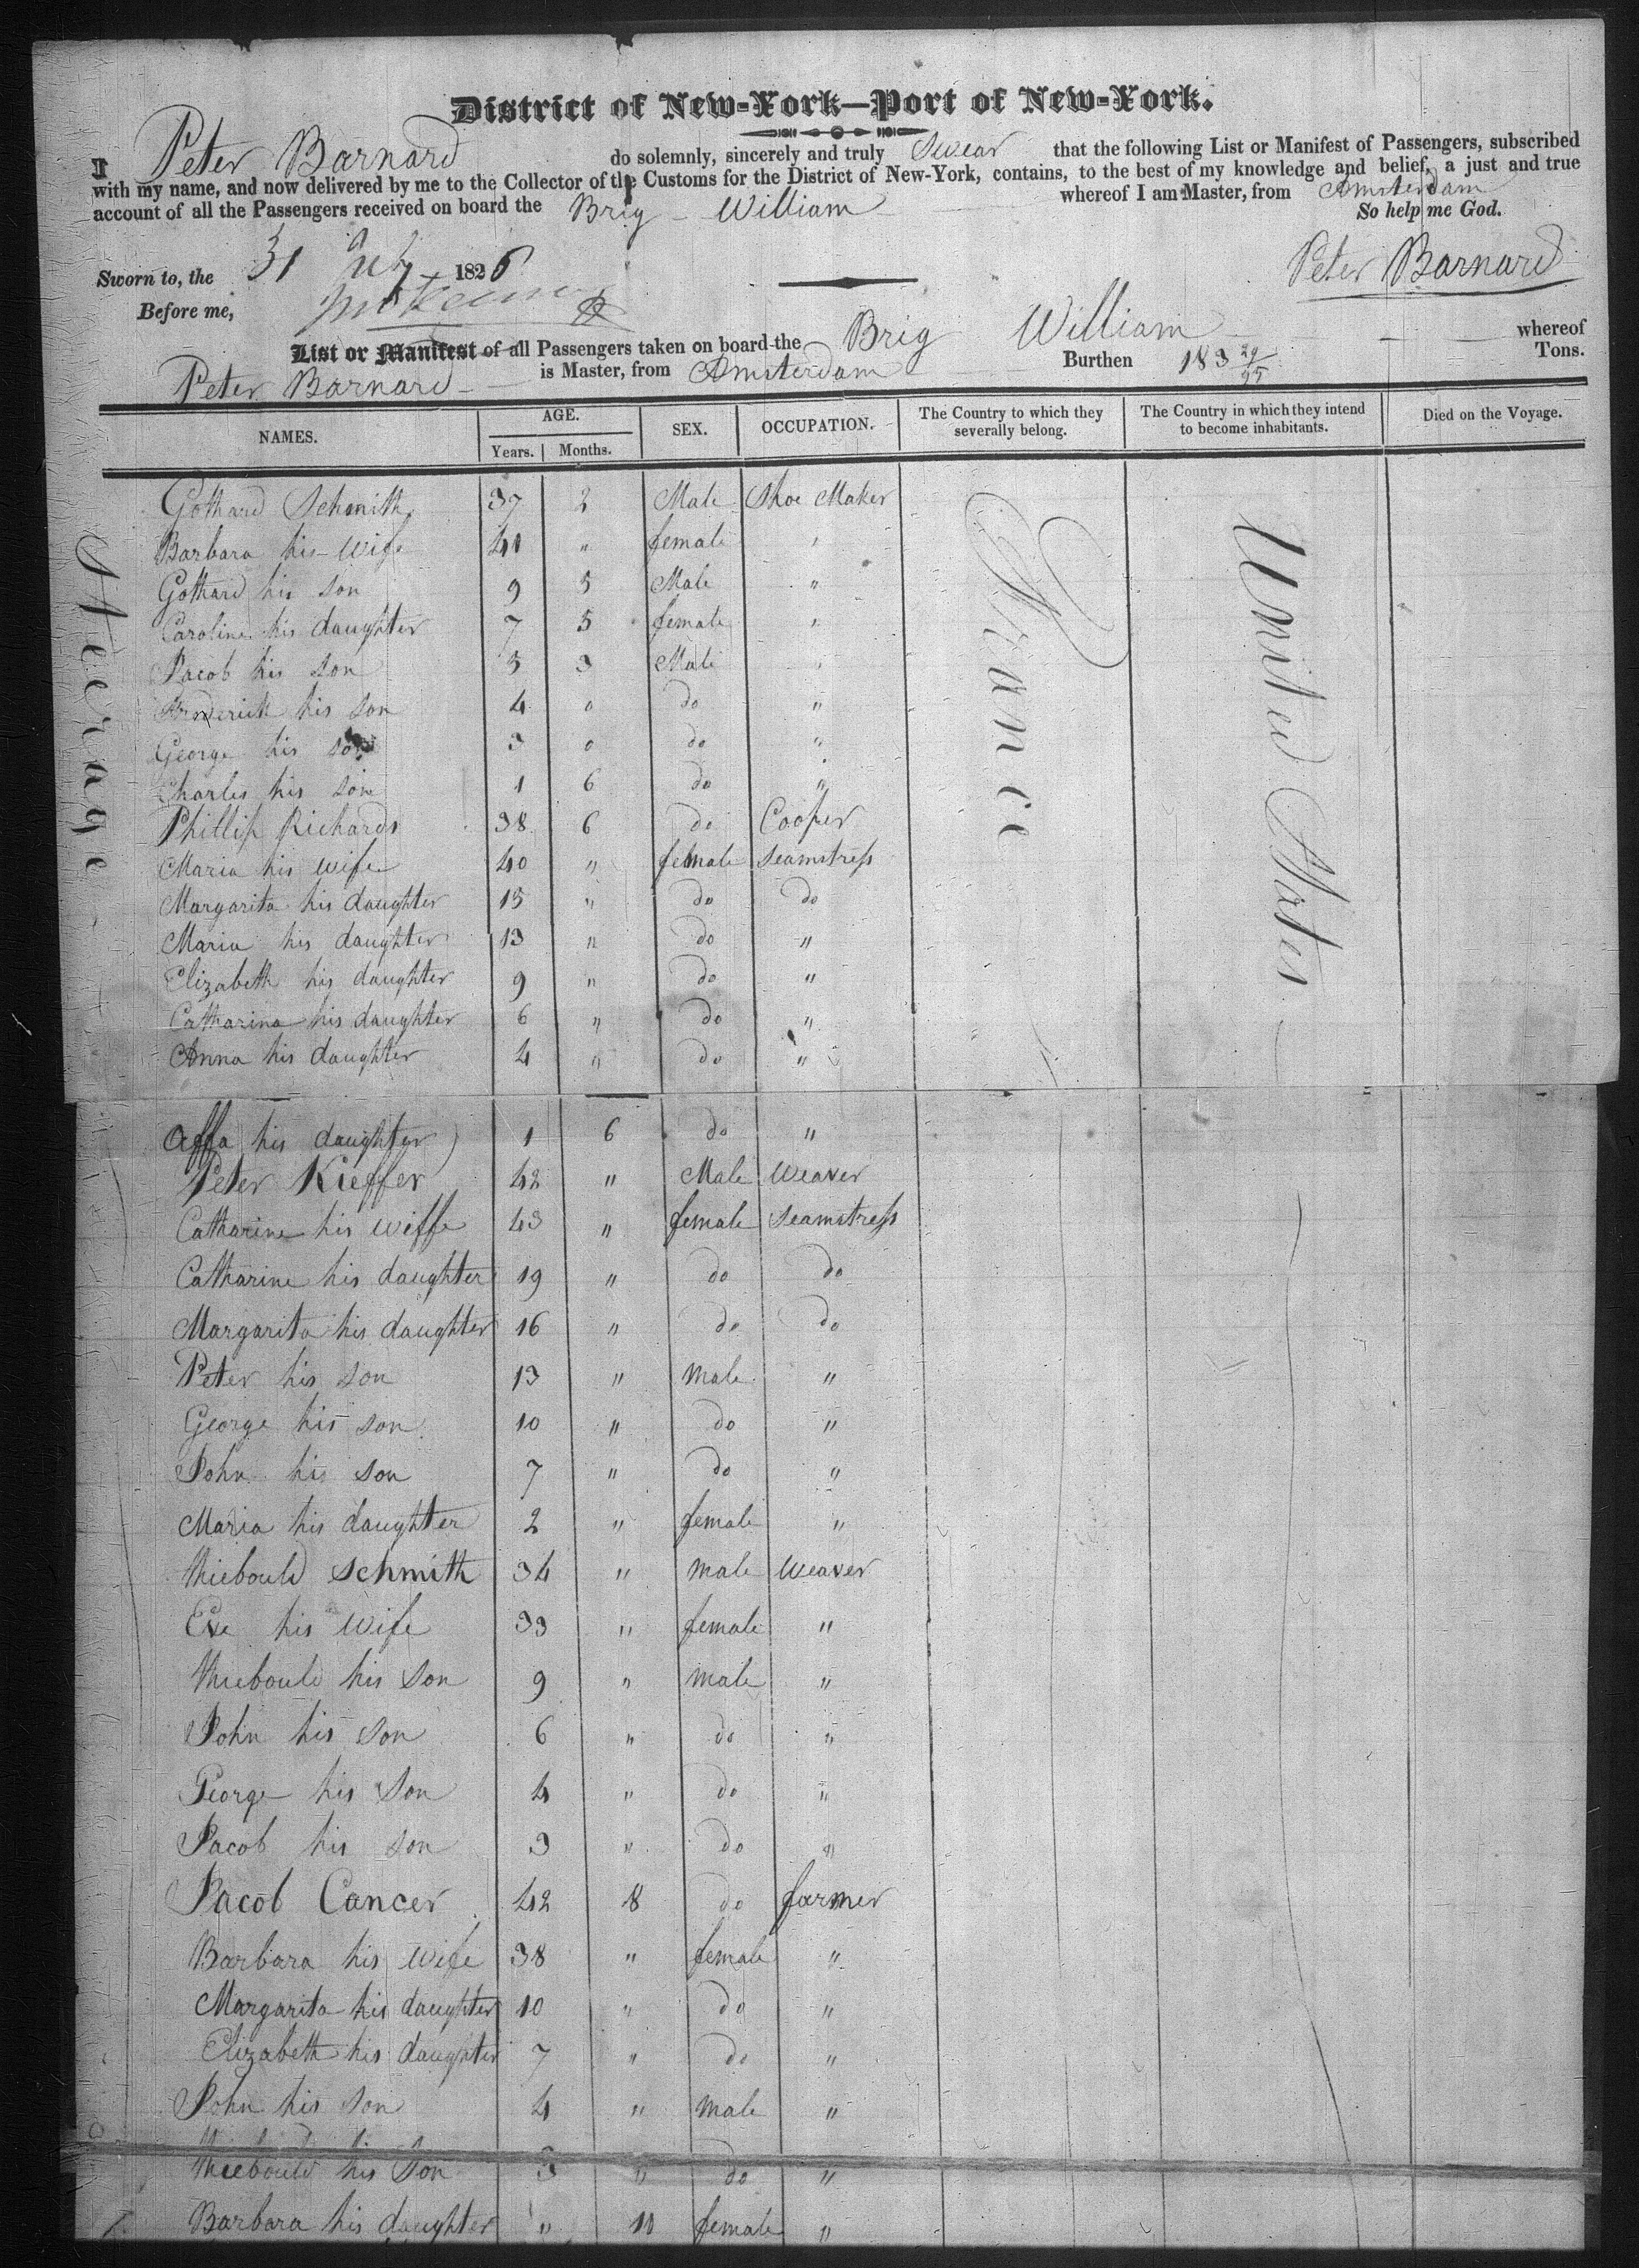 District of New-York—Port of New-York.
I Peter Barnard do solemnly, sincerely and truly Swear that the following List or Manifest of Passengers, subscribed
with my name, and now delivered by me to the Collector of the Customs for the District of New-York, contains, to the best of my knowledge and belief, a just and true
account of all the Passengers received on board the Brig William whereof I am Master, from Amsterdam
So help me God.
Sworn to, the 31 July 1826
Peter Barnard
Before me,
List or Manifest of all Passengers taken on board the Brig William whereof
Peter Barnard is Master, from Amsterdam Burthen 183 29/95 Tons.
NAMES. AGE. SEX. OCCUPATION. The Country to which they severally belong. The Country in which they intend to become inhabitants. Died on the Voyage.
Years. Months.
Steerage
France
United States
Gothard Schmith 37 2 Male Shoe Maker
Barbara his wife 41 " female "
Gothard his son 9 5 Male "
Caroline his daughter 7 5 female "
Jacob his son 5 3 Male "
his son 4 0 do "
George his son 3 0 do "
Charles his son 1 6 do "
Phillip Richards 38 6 do Cooper
Maria his wife 40 " female seamstress
Margarita his daughter 15 " do do
Maria his daughter 13 " do "
Elizabeth his daughter 9 " do "
Catharina his daughter 6 " do "
Anna his daughter 4 " do "
Affa his daughter 1 6 do "
Peter Kieffer 42 " Male weaver
Catharine his wiffe 43 " female seamstress
Catharine his daughter 19 " do do
Margarita his daughter 16 " do do
Peter his son 13 " male "
George his son 10 " do "
John his son 7 " do "
Maria his daughter 2 " female "
Thiebould Schmith 34 " male weaver
Eve his wife 33 " female "
Thiebould his son 9 " male "
John his son 6 " do "
George his son 4 " do "
Jacob his son 3 " do "
Jacob Cancer 42 8 do farmer
Barbara his wife 38 " female "
Margarita his daughter 10 " do "
Elizabeth his daughter 7 " do "
John his son 4 " male "
Thiebould his son 3 " do "
Barbara his daughter " 10 female "